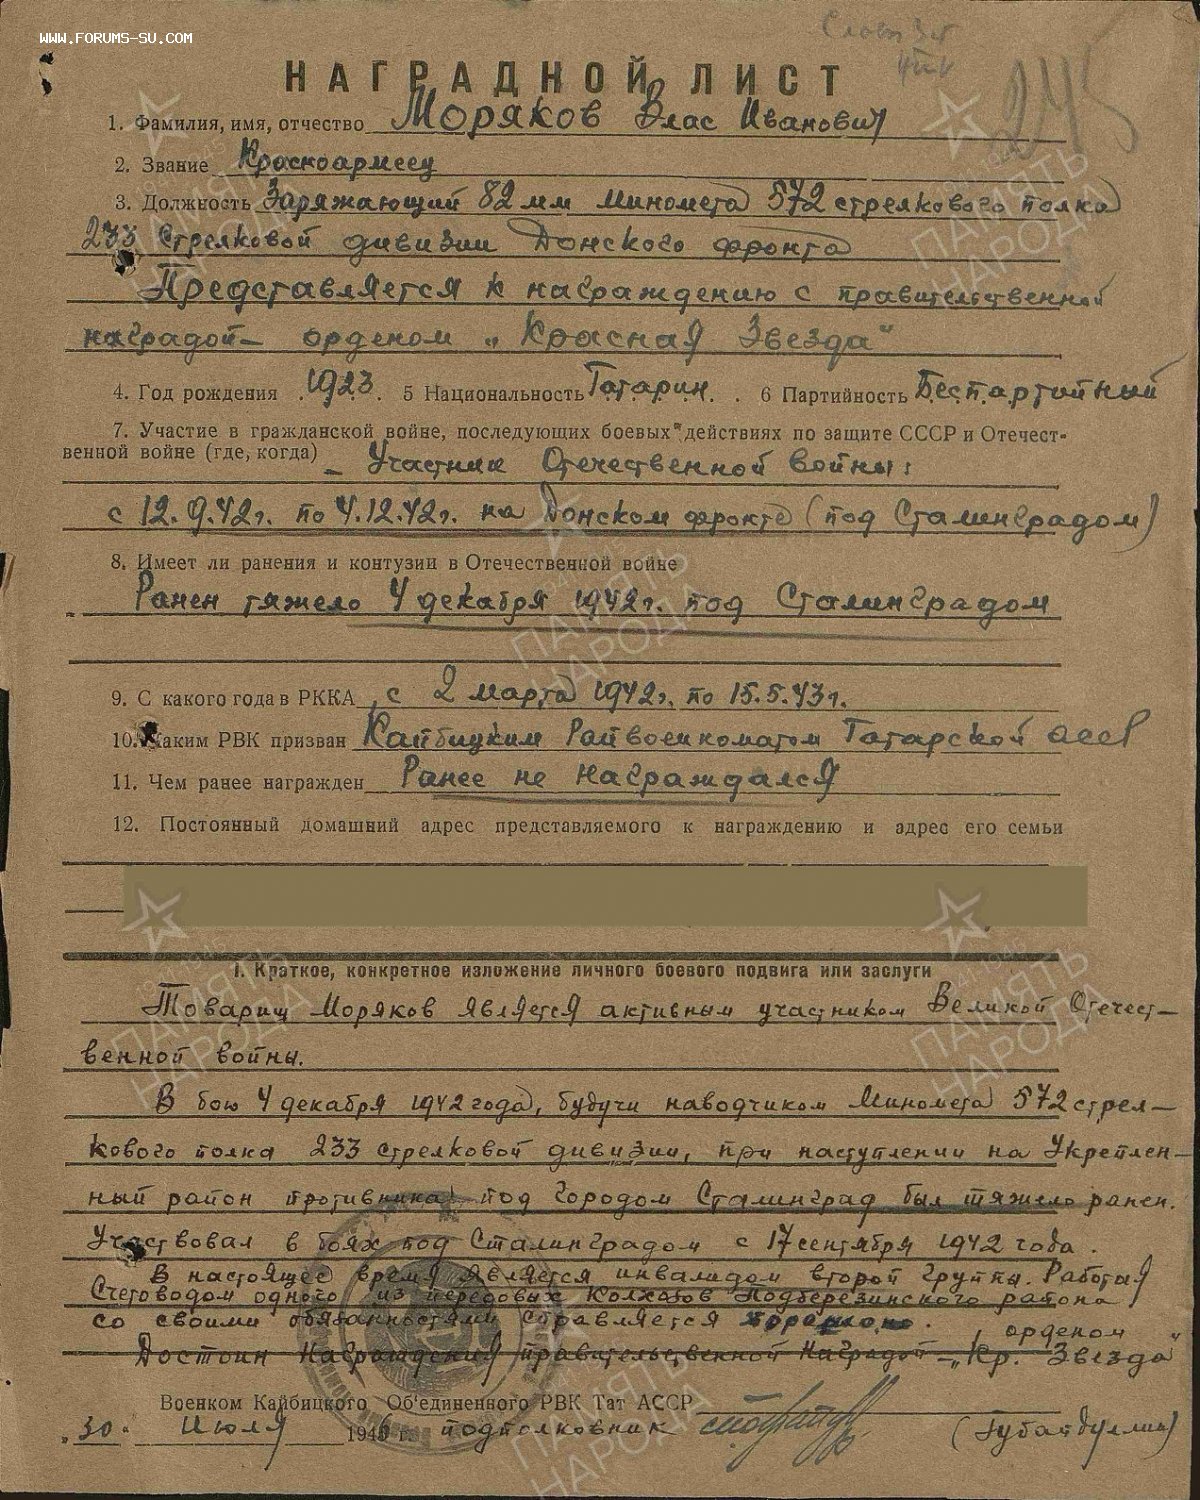 WWW.FORUMS-SU.COM
245
НАГРАДНОЙ ЛИСТ
1. Фамилия, имя, отчество Моряков Влас Иванович
2. Звание Красноармеец
3. Должность Заряжающий 82 мм миномета 572 стрелкового полка
233 стрелковой дивизии Донского фронта
Представляется к награждению с правительственной
наградой — орденом „Красная Звезда"
4. Год рождения 1923. 5 Национальность Татарин. 6 Партийность Беспартийный
7. Участие в гражданской войне, последующих боевых действиях по защите СССР и Отечест-
венной войне (где, когда) – Участник Отечественной войны:
с 12.9.42г. по 4.12.42г. на Донском фронте (под Сталинградом)
8. Имеет ли ранения и контузии в Отечественной войне
Ранен тяжело 4 декабря 1942г. под Сталинградом
9. С какого года в РККА с 2 марта 1942г. по 15.5.43г.
10. Каким РВК призван Кайбицким Райвоенкоматом Татарской АССР
11. Чем ранее награжден Ранее не награждался
12. Постоянный домашний адрес представляемого к награждению и адрес его семьи
I. Краткое, конкретное изложение личного боевого подвига или заслуги
Товарищ Моряков является активным участником Великой Отечест-
венной войны.
В бою 4 декабря 1942 года, будучи наводчиком миномета 572 стрел-
кового полка 233 стрелковой дивизии, при наступлении на укреплен-
ный район противника под городом Сталинград был тяжело ранен.
Участвовал в боях под Сталинградом с 17 сентября 1942 года.
В настоящее время является инвалидом второй группы. Работая
Счетоводом одного из передовых колхозов Подберезинского района
со своими обязанностями справляется хорошо.
Достоин награждения правительственной наградой — орденом „Кр. Звезда"
Военком Кайбицкого Об'единенного РВК Тат АССР
„30" Июля 1946 г. подполковник (Губайдуллин)
ПАМЯТЬ НАРОДА
1941-1945